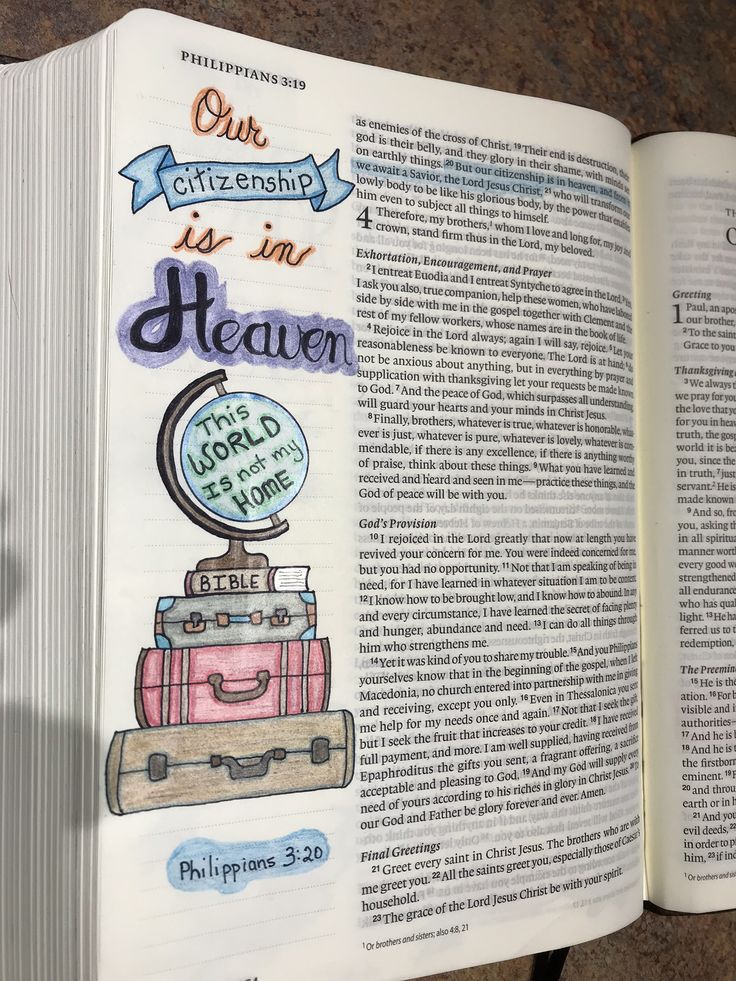 PHILIPPIANS 3:19
Our
citizenship
is in
Heaven
This
WORLD
Is not my
HOME
BIBLE
Philippians 3:20
as enemies of the cross of Christ. 19 Their end is destruction, their
god is their belly, and they glory in their shame, with minds set
on earthly things. 20 But our citizenship is in heaven, and from it
we await a Savior, the Lord Jesus Christ, 21 who will transform our
lowly body to be like his glorious body, by the power that enables
him even to subject all things to himself.
4 Therefore, my brothers,1 whom I love and long for, my joy and
crown, stand firm thus in the Lord, my beloved.
Exhortation, Encouragement, and Prayer
2 I entreat Euodia and I entreat Syntyche to agree in the Lord. 3 Yes,
I ask you also, true companion, help these women, who have labored
side by side with me in the gospel together with Clement and the
rest of my fellow workers, whose names are in the book of life.
4 Rejoice in the Lord always; again I will say, rejoice. 5 Let your
reasonableness be known to everyone. The Lord is at hand; 6 do
not be anxious about anything, but in everything by prayer and
supplication with thanksgiving let your requests be made known
to God. 7 And the peace of God, which surpasses all understanding,
will guard your hearts and your minds in Christ Jesus.
8 Finally, brothers, whatever is true, whatever is honorable, what-
ever is just, whatever is pure, whatever is lovely, whatever is com-
mendable, if there is any excellence, if there is anything worthy
of praise, think about these things. 9 What you have learned and
received and heard and seen in me—practice these things, and the
God of peace will be with you.
God's Provision
10 I rejoiced in the Lord greatly that now at length you have
revived your concern for me. You were indeed concerned for me,
but you had no opportunity. 11 Not that I am speaking of being in
need, for I have learned in whatever situation I am to be content.
12 I know how to be brought low, and I know how to abound. In any
and every circumstance, I have learned the secret of facing plenty
and hunger, abundance and need. 13 I can do all things through
him who strengthens me.
14 Yet it was kind of you to share my trouble. 15 And you Philippians
yourselves know that in the beginning of the gospel, when I left
Macedonia, no church entered into partnership with me in giving
and receiving, except you only. 16 Even in Thessalonica you sent
me help for my needs once and again. 17 Not that I seek the gift,
but I seek the fruit that increases to your credit. 18 I have received
full payment, and more. I am well supplied, having received from
Epaphroditus the gifts you sent, a fragrant offering, a sacrifice
acceptable and pleasing to God. 19 And my God will supply every
need of yours according to his riches in glory in Christ Jesus. 20 To
our God and Father be glory forever and ever. Amen.
Final Greetings
21 Greet every saint in Christ Jesus. The brothers who are with
me greet you. 22 All the saints greet you, especially those of Caesar's
household.
23 The grace of the Lord Jesus Christ be with your spirit.
1 Or brothers and sisters; also 4:8, 21
Greeting
1 Paul, an apos
our brother,
2 To the saint
Grace to you
Thanksgiving
3 We always t
we pray for you
the love that yo
for you in heav
truth, the gosp
world it is bea
you, since the
in truth, 7 just
servant.2 He is
made known
9 And so, fro
you, asking th
in all spiritua
manner worth
every good w
strengthened
all endurance
who has qual
light. 13 He ha
ferred us to t
redemption,
The Preemine
15 He is the
ation. 16 For b
visible and i
authorities—
17 And he is b
18 And he is t
the firstborn
eminent. 19 F
20 and throu
earth or in h
21 And you
evil deeds, 22
in order to p
him, 23 if ind
1 Or brothers and sist